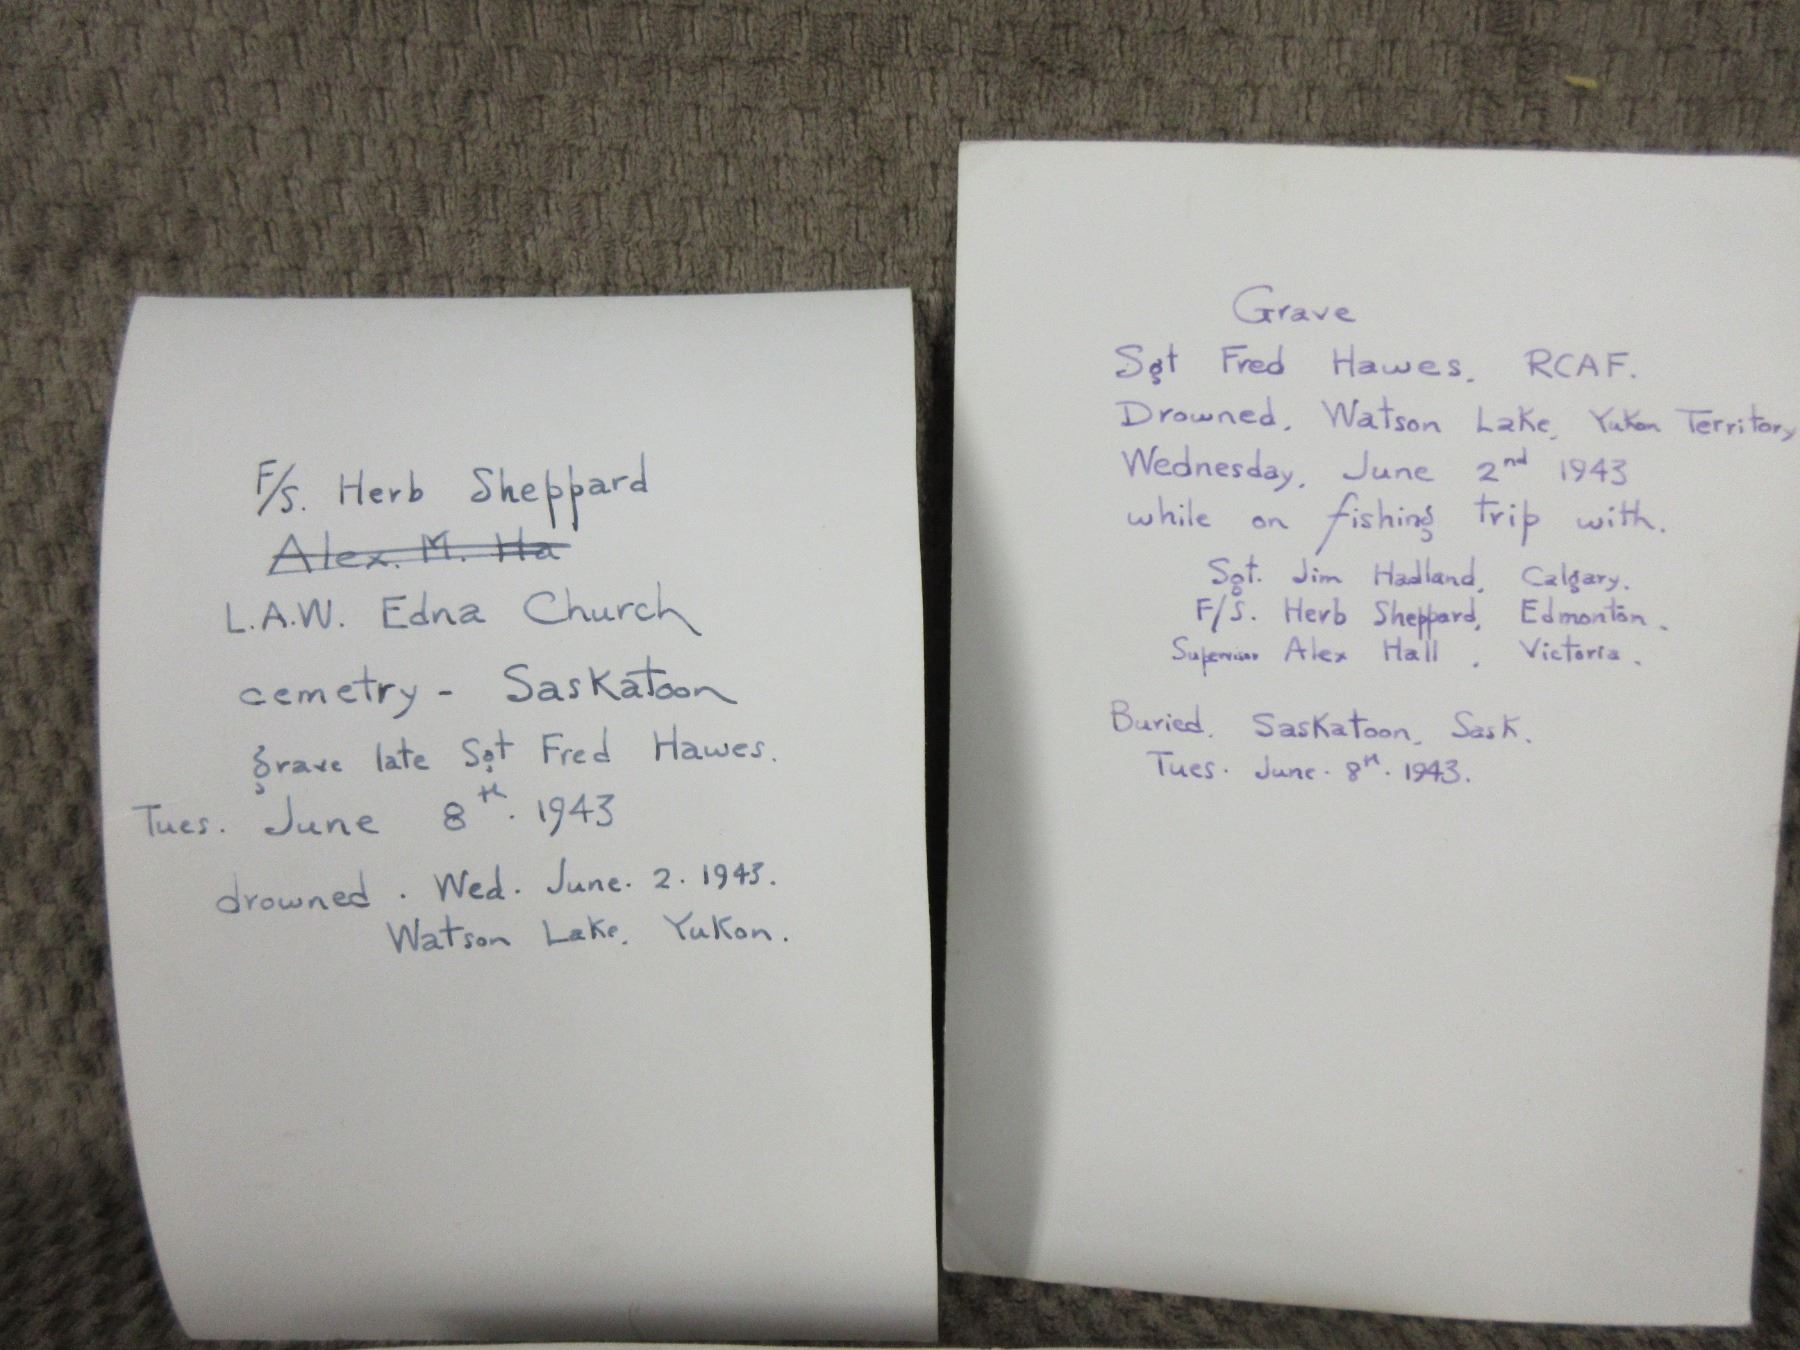 F/S. Herb Sheppard
Alex. M. Ha
L.A.W. Edna Church
cemetry - Saskatoon
grave late Sgt Fred Hawes.
Tues. June 8th. 1943
drowned. Wed. June. 2. 1943.
Watson Lake, Yukon.
Grave
Sgt Fred Hawes. RCAF.
Drowned. Watson Lake, Yukon Territory
Wednesday, June 2nd 1943
while on fishing trip with.
Sgt. Jim Hadland, Calgary.
F/S. Herb Sheppard, Edmonton.
Supervisor Alex Hall, Victoria.
Buried. Saskatoon, Sask.
Tues. June. 8th. 1943.